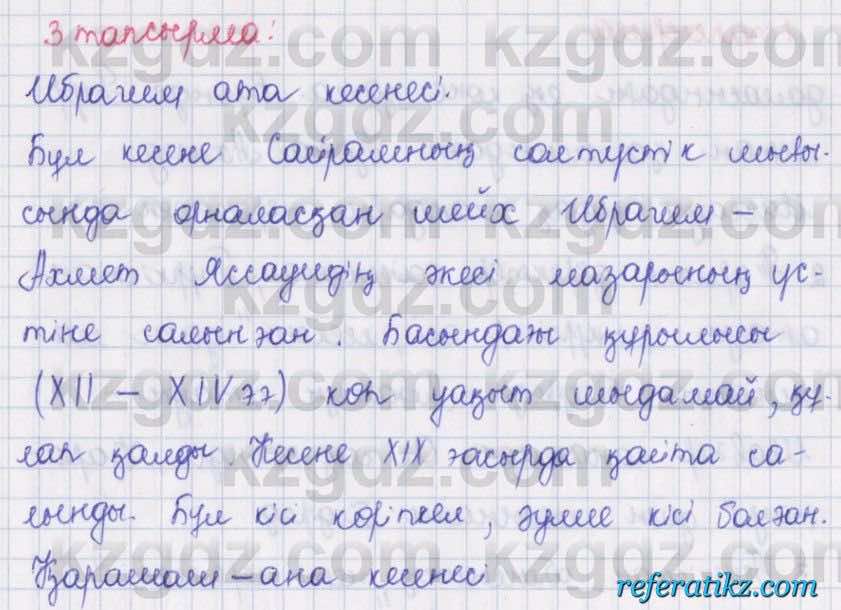 3 тапсырма:
Ибрагим ата кесенесі.
Бұл кесене Сайрамның солтүстік шығы-
сында орналасқан шейх Ибрагим –
Ахмет Яссауидің әкесі мазарының үс-
тіне салынған. Басындағы құрылысы
(XII – XIV ғғ) көп уақыт шыдамай, құ-
лап қалды. Кесене XIX ғасырда қайта са-
лынды. Бұл кісі көріпкел, әулие кісі болған.
Қарашаш – ана кесенесі
kzgdz.com
referatikz.com